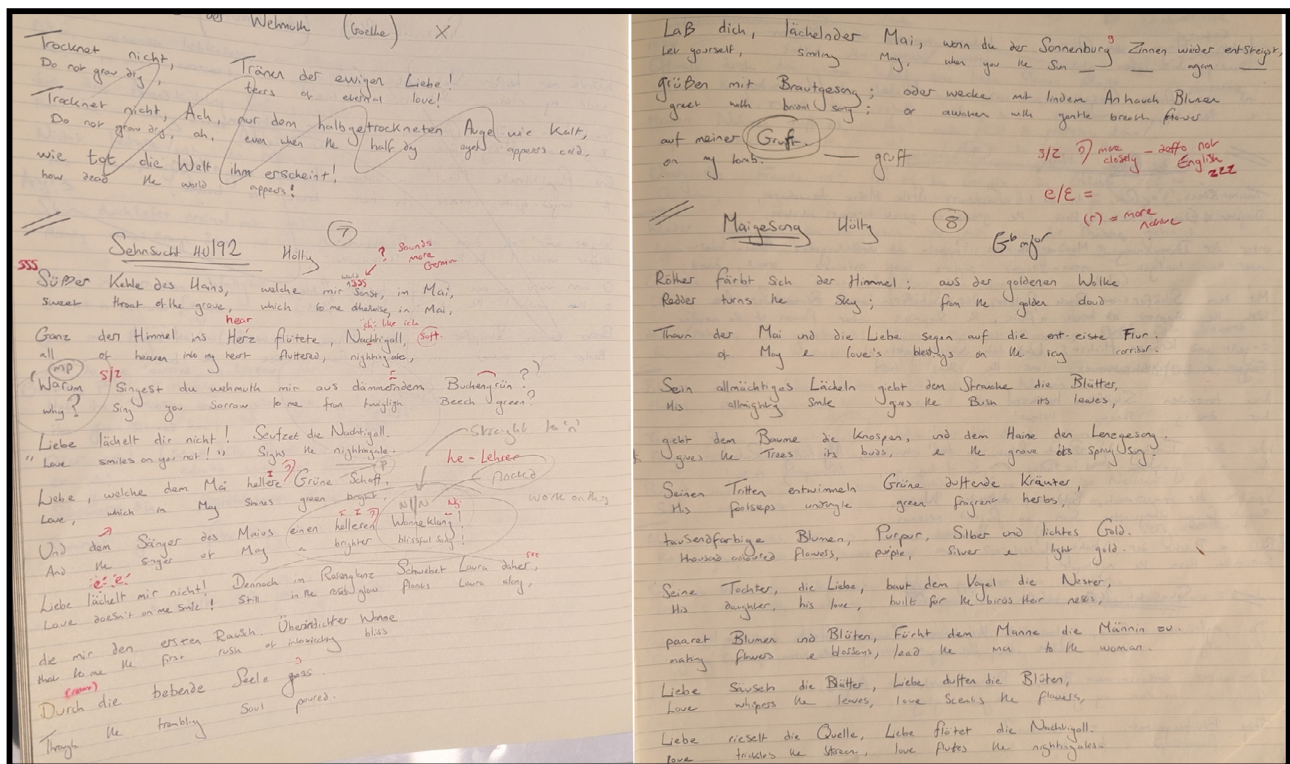 der Wehmuth (Goethe) X
Trocknet nicht,
Do not grow dry,
Tränen der ewigen Liebe!
tears of eternal love!
Trocknet nicht, Ach, nur dem halbgetrockneten Auge wie Kalt,
Do not grow dry, ah, even when the half dry eyes appears cold,
wie tot die Welt ihm erscheint!
how dead the world appears!
7
Sehnsucht HU192 Hölty
? Sounds more German
sss
Süßer Kehle des Hains, welche mir sonst, in Mai,
sweet throat of the grove, which to me otherwise, in Mai,
hear
ich: like ich
Ganz den Himmel ins Herz flötete, Nachtigall, soft
all of heaven into my heart fluttered, nightingale,
mp
s/z
Warum Singest du wehmuth mir aus dämmerndem Buchengrün?
why? Sing you Sorrow to me from twiligh Beech green?
Liebe lächelt dir nicht! Seufzet die Nachtigall.
"Love smiles on you not!" Sighs the nightingale.
straight to 'n'
he - Lehrer
Liebe, welche dem Mai hellere Grüne Schaft,
Love, which in May Shines green bright.
N//N
work on this
Und dem Sänger des Maius einen helleren Wonneklang!
And the singer of May a brighter blissful song!
Liebe lächelt mir nicht! Dennoch in Rosenglanz Schwebet Laura daher,
Love doesn't on me smile! Still in the rosey glow floats Laura along,
die mir den ersten Rausch Überirdischer Wonne
that to me the first rush of bliss
Durch die bebende Seele goss.
Through the trembling Soul poured.
Laß dich, lächelnder Mai, wenn du der Sonnenburg Zinnen wieder entsteigst,
Let yourself, smiling May, when you the Sun __ __ again __
grüßen mit Brautgesang; oder wecke mit lindem Anhauch Blumen
greet with bridal song; or awaken with gentle breath flowers
auf meiner Gruft. — gruft
on my tomb.
s/z more closely - defto not English zzz
e/ɛ =
(r) = more native
Maigesang Hölty 8
Gb major
Röther färbt sich der Himmel; aus der goldenen Wolke
Redder turns the Sky; from the golden cloud
Thaun der Mai und die Liebe segen auf die ent-eiste Flur.
of May & love's blessings on the icy corridor.
Sein allmächtiges Lächeln giebt dem Strauche die Blätter,
His allmighty smile gives the Bush its leaves,
giebt dem Baume die Knospen, und dem Haine den Lenzgesang.
gives the Trees its buds, & the grove its spring song.
Seinen Tritten entwimmeln Grüne duftende Kräuter,
His footseps green fragrant herbs,
tausendfarbige Blumen, Purpur, Silber und lichtes Gold.
thousand coloured flowers, purple, silver & light gold.
Seine Tochter, die Liebe, baut dem Vogel die Nester,
His daughter, his love, built for the birds their nests,
paaret Blumen und Blüten, Fürht dem Manne die Männin zu.
mating flowers & blossoms, lead the man to the woman.
Liebe säuseln die Blätter, Liebe duften die Blüten,
Love whispers the leaves, love Scents the flowers,
Liebe rieselt die Quelle, Liebe flötet die Nachtigall.
love trickles the stream, love flutes the nightingales.